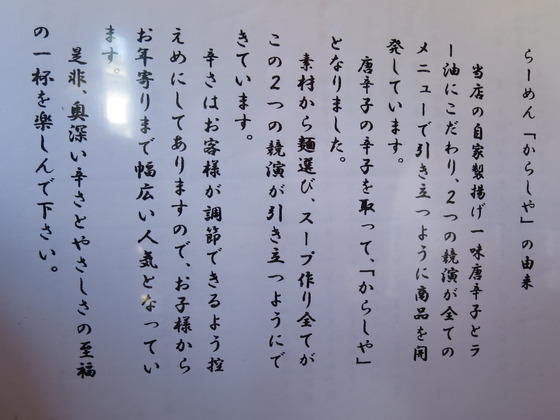 らーめん「からしや」の由来
当店の自家製揚げ一味唐辛子とラ
ー油にこだわり、2つの競演が全ての
メニューで引き立つように商品を開
発しています。
唐辛子の辛子を取って、「からしや」
となりました。
素材から麺選び、スープ作り全てが
この2つの競演が引き立つようにで
きています。
辛さはお客様が調節できるよう控
えめにしてありますので、お子様から
お年寄りまで幅広い人気となってい
ます。
是非、奥深い辛さとやさしさの至福
の一杯を楽しんで下さい。